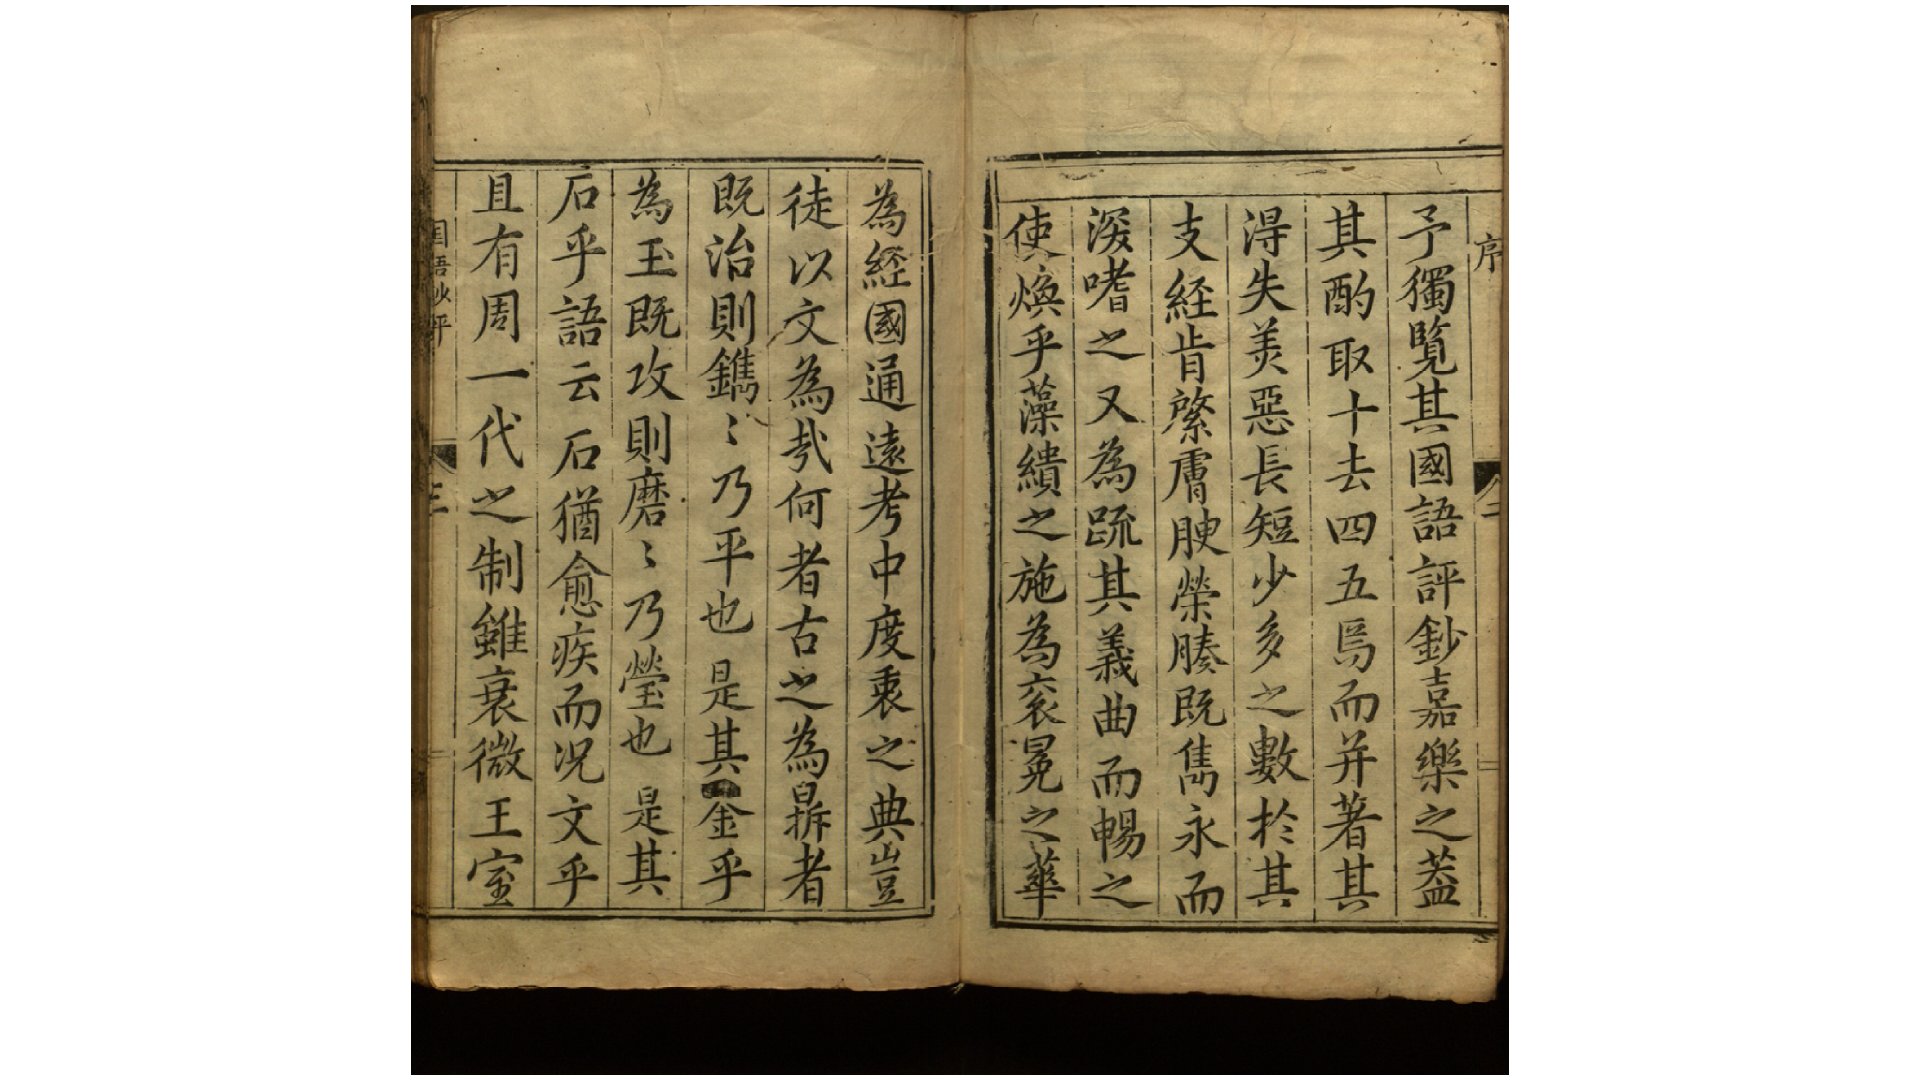 序
二
予獨覧其國語評鈔嘉樂之葢
其酌取十去四五焉而并著其
得失美惡長短少多之數於其
支経肯綮膚腴榮腠既雋永而
深嗜之又為䟽其義曲而暢之
使煥乎藻繢之施為衮冕之華
為経國通遠考中度衷之典豈
徒以文為㢤何者古之為鼎者
既治則鐫〻乃平也是其金乎
為玉既攻則磨〻乃瑩也是其
石乎語云石猶愈疾而况文乎
且有周一代之制雖衰微王室
国語鈔評
三